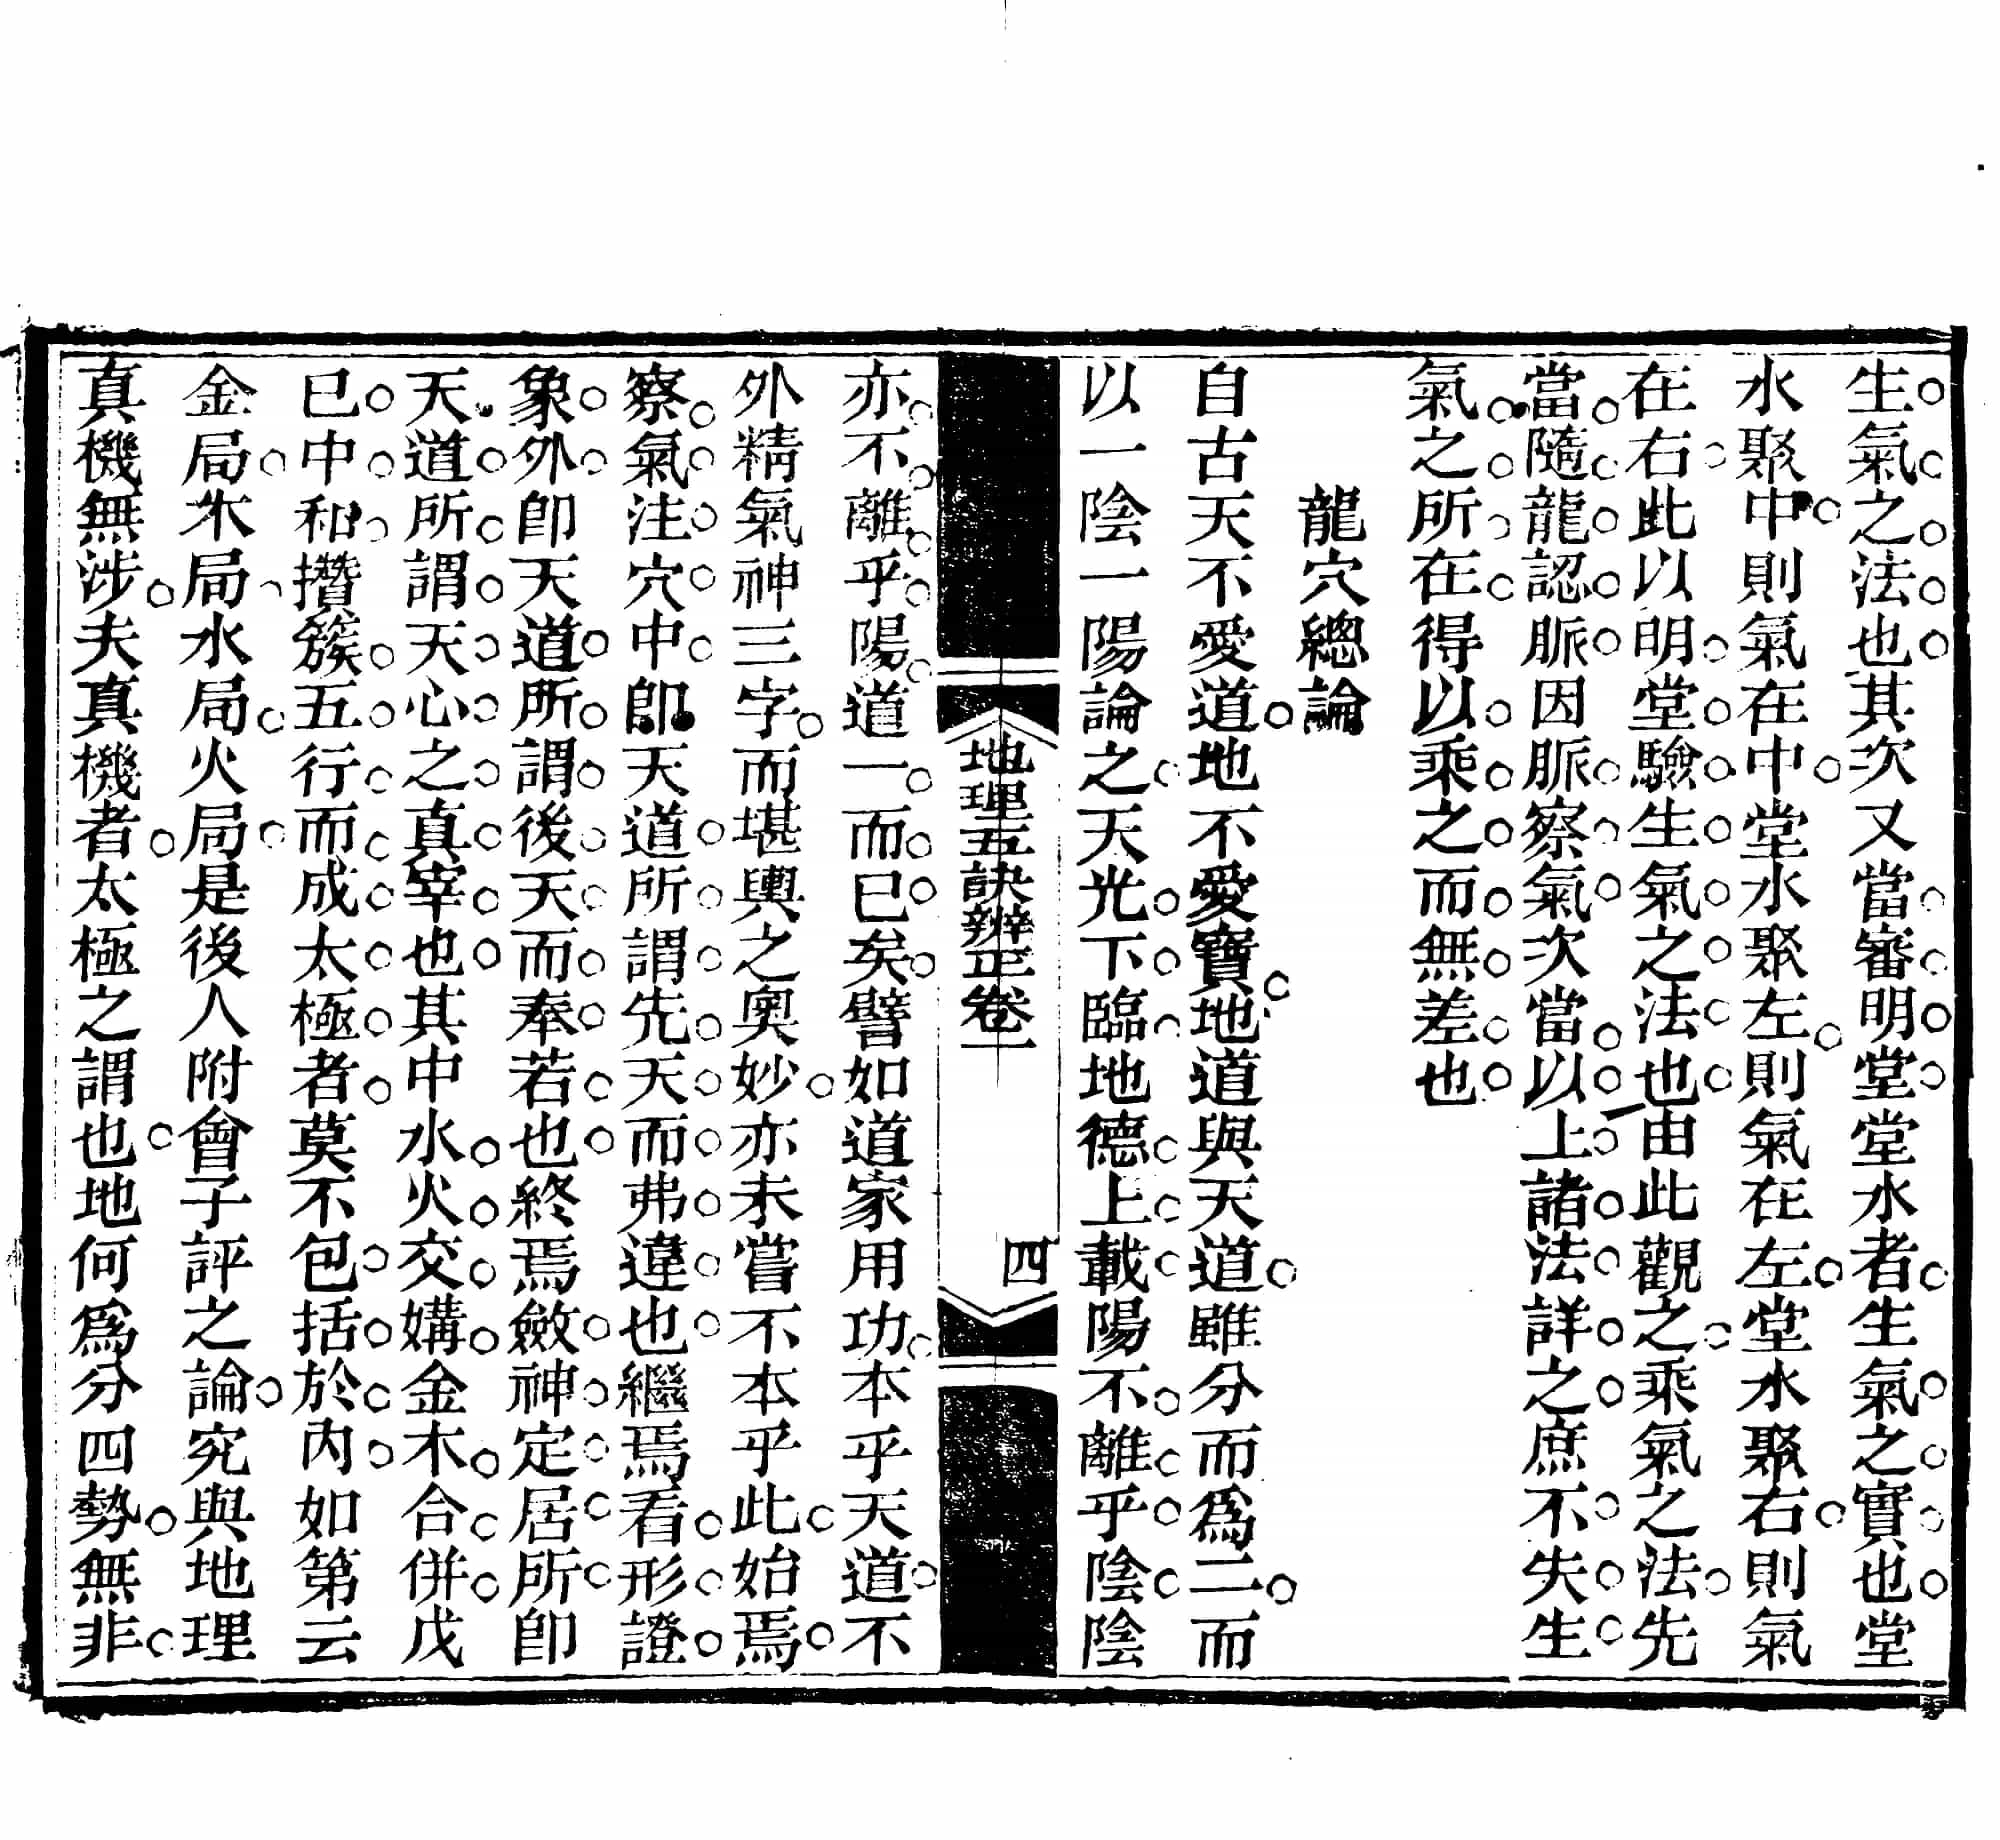 生氣之法也其次又當審明堂堂水者生氣之實也堂
水聚中則氣在中堂水聚左則氣在左堂水聚右則氣
在右此以明堂驗生氣之法也由此觀之乘氣之法先
當隨龍認脈因脈察氣次當以上諸法詳之庶不失生
氣之所在得以乘之而無差也
龍穴總論
自古天不愛道地不愛寶地道與天道雖分而爲二而
以一陰一陽論之天光下臨地德上載陽不離乎陰陰
地理五訣辨正卷一
四
亦不離乎陽道一而已矣譬如道家用功本乎天道不
外精氣神三字而堪輿之奧妙亦未嘗不本乎此始焉
察氣注穴中卽天道所謂先天而弗違也繼焉看形證
象外卽天道所謂後天而奉若也終焉斂神定居所卽
天道所謂天心之真宰也其中水火交媾金木合併戊
巳中和攢簇五行而成太極者莫不包括於內如第云
金局木局水局火局是後人附會子評之論究與地理
真機無涉夫真機者太極之謂也地何爲分四勢無非